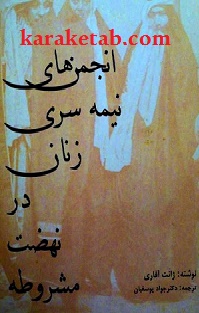 karaketab.com
انجمن‌های
نیمه سری
زنان
در
نهضت
مشروطه
نوشته: ژانت آفاری
ترجمه: دکتر جواد یوسفیان